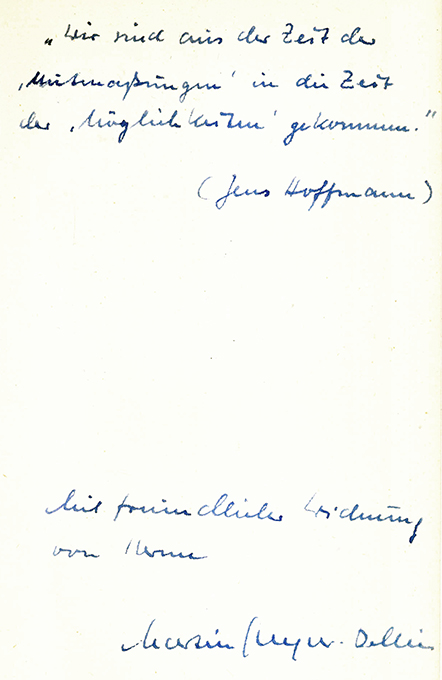 „Wir sind aus der Zeit der
‚Mutmaßungen' in die Zeit
der ‚Möglichkeiten' gekommen."
(Jens Hoffmann)
Mit freundlicher Widmung
von
Martin Gregor-Dellin